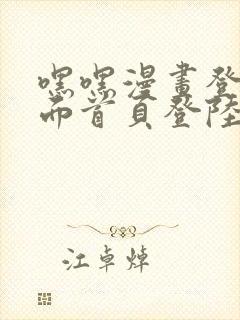 嘿嘿漫畫登
而首頁登陸
江卓焯